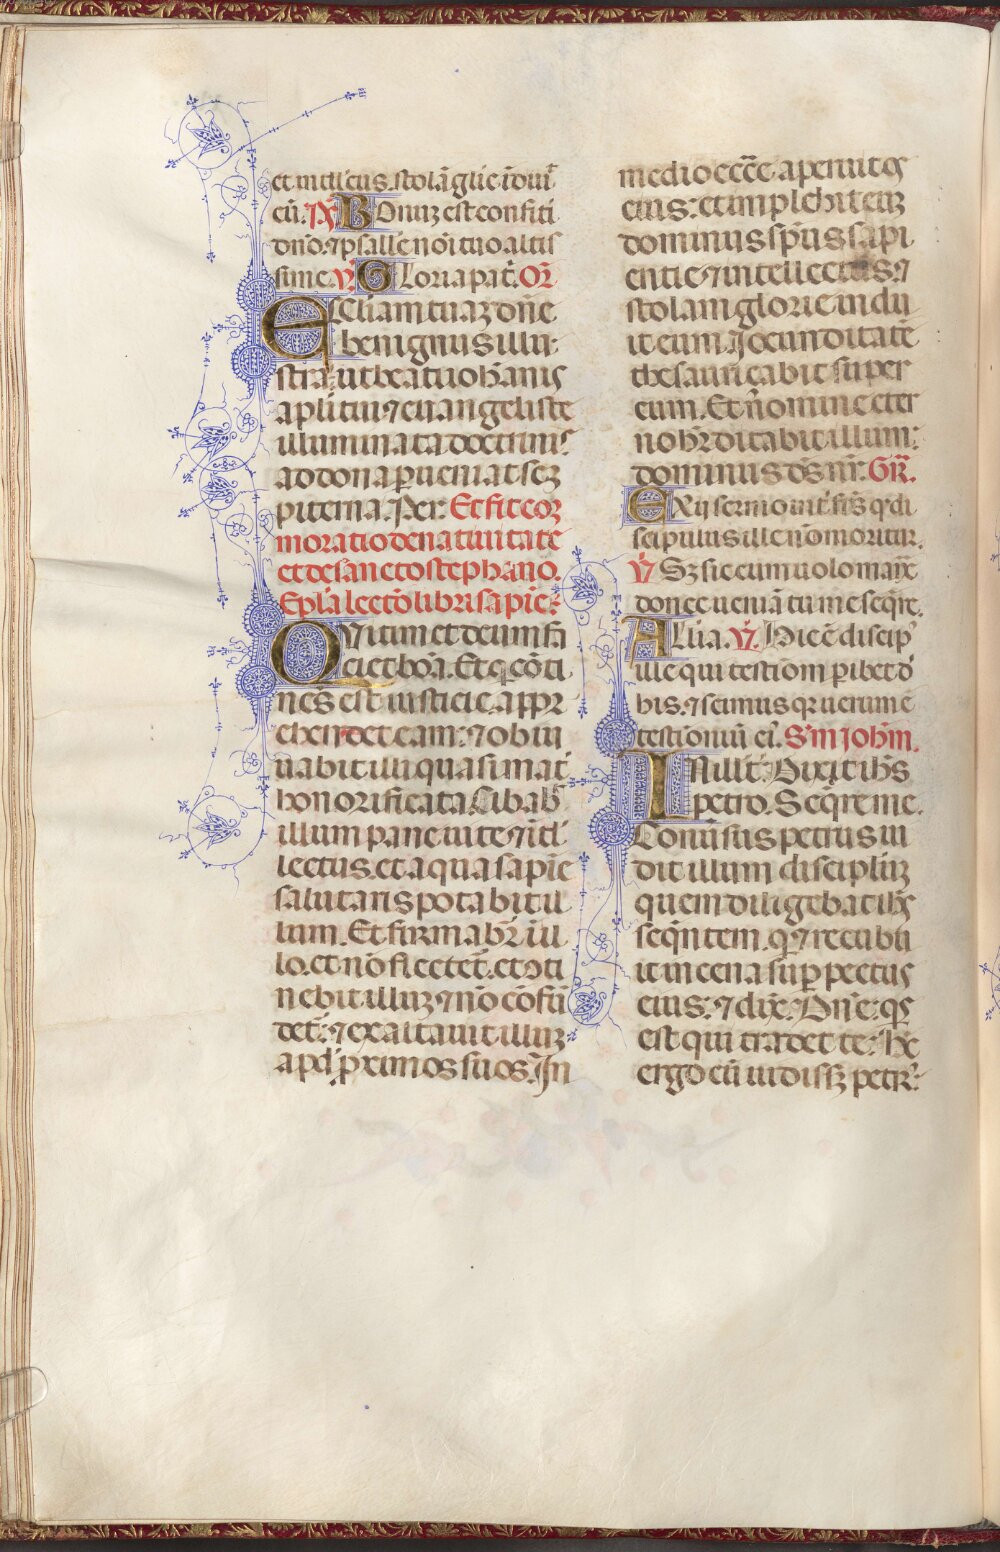 et intll'cus. stolā glīe īduit
eū. P̄s Bonuz est confiti
dnō. ⁊ psalle nōi tuo altis
sime. V̄. Gloria pat̄. Or̄
Ecc̄liam tuaz dōne
benignus illu-
stra, ut beati iohānis
apl'i tui ⁊ euangeliste
illuminata doctrinis
ad dona ꝑueniat sez
piterna. Per. Et fit coz
moratio de natiuitate
et de sancto stephano.
Ep̄la lectō libri sapiē:
Qvi timet deum fa
ciet boā. Et q̄ cōti
nēs est iusticie, appr
ehendet eam: ⁊ obiu
uabit illi quasi mat̄
honorificata. Cibab'
illum pane uite ⁊ ītel
lectus. et aqua sapīe
salutaris potabit il
lum. Et firmabr̄ in il
lo. et nō flectet̄. et ↄti
nebit illuz ⁊ nō cōfū
det̄: ⁊ exaltauit illuz
apd' ꝓximos suos. In
medio ecc̄e aperuit os
eius: et implebit euz
dominus sp̄us sapi
entie ⁊ intellectus: ⁊
stolam glorie indu
it eum. Jocunditatē
thesaurizabit super
eum. Et nōmine eter
no hr̄ditabit illum:
dominus dēs nr̄. Gr̄.
Exij sermo int' frēs q̄ di
scipulus ille nō moritur.
V̄. Sz sic eum uolo manēe
donec ueniā tu me seq̄re.
Alīa. V̄. Hic ē discip'
ille qui testiom ꝑibet d'
his. ⁊ scimus qz uerum ē
testioniū ei'. S'm joh'm.
IN illt̄: Dixit ih̄s
petro. Seq̄re me.
Conusus petrus ui
dit illum discipl'uz
quem diligebat ih̄s
seq̄ntem. q̄ ⁊ recubu
it in cena suꝑ pectus
eius: ⁊ dix̄. Dn̄e: q̄s
est qui tradet te: h̄c
ergo cū uidissz petr':